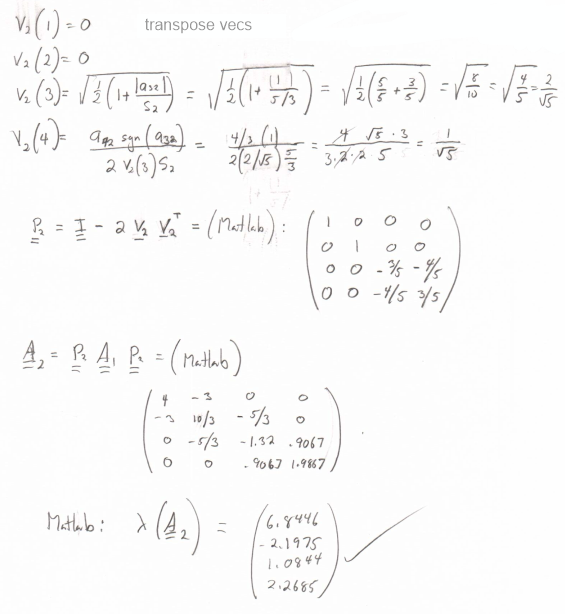 V₂(1) = 0 transpose vecs
V₂(2) = 0
V₂(3) = √(½(1 + |a₃₂|/S₂)) = √(½(1 + 1/(5/3))) = √(½(5/5 + 3/5)) = √(8/10) = √(4/5) = 2/√5
V₂(4) = a₄₂ sgn(a₃₂) / 2 V₂(3) S₂ = 4/3 (1) / 2(2/√5) 5/3 = 4 √5 · 3 / 3·2·2 5 = 1/√5
P₂ = I - 2 V₂ V₂ᵀ = (Matlab):
1 0 0 0
0 1 0 0
0 0 -3/5 -4/5
0 0 -4/5 3/5
A₂ = P₂ A₁ P₂ = (Matlab)
4 -3 0 0
-3 10/3 -5/3 0
0 -5/3 -1.32 .9067
0 0 .9067 1.9867
Matlab: λ(A₂) =
6.8446
-2.1975
1.0844
2.2685